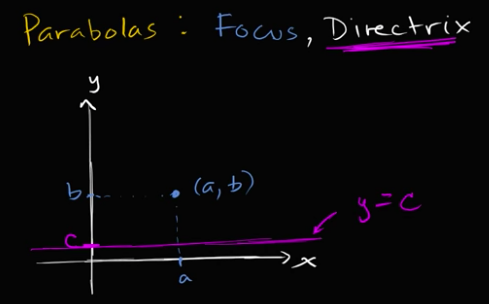 Parabolas : Focus, Directrix
y
b (a, b)
y = c
c
x
a